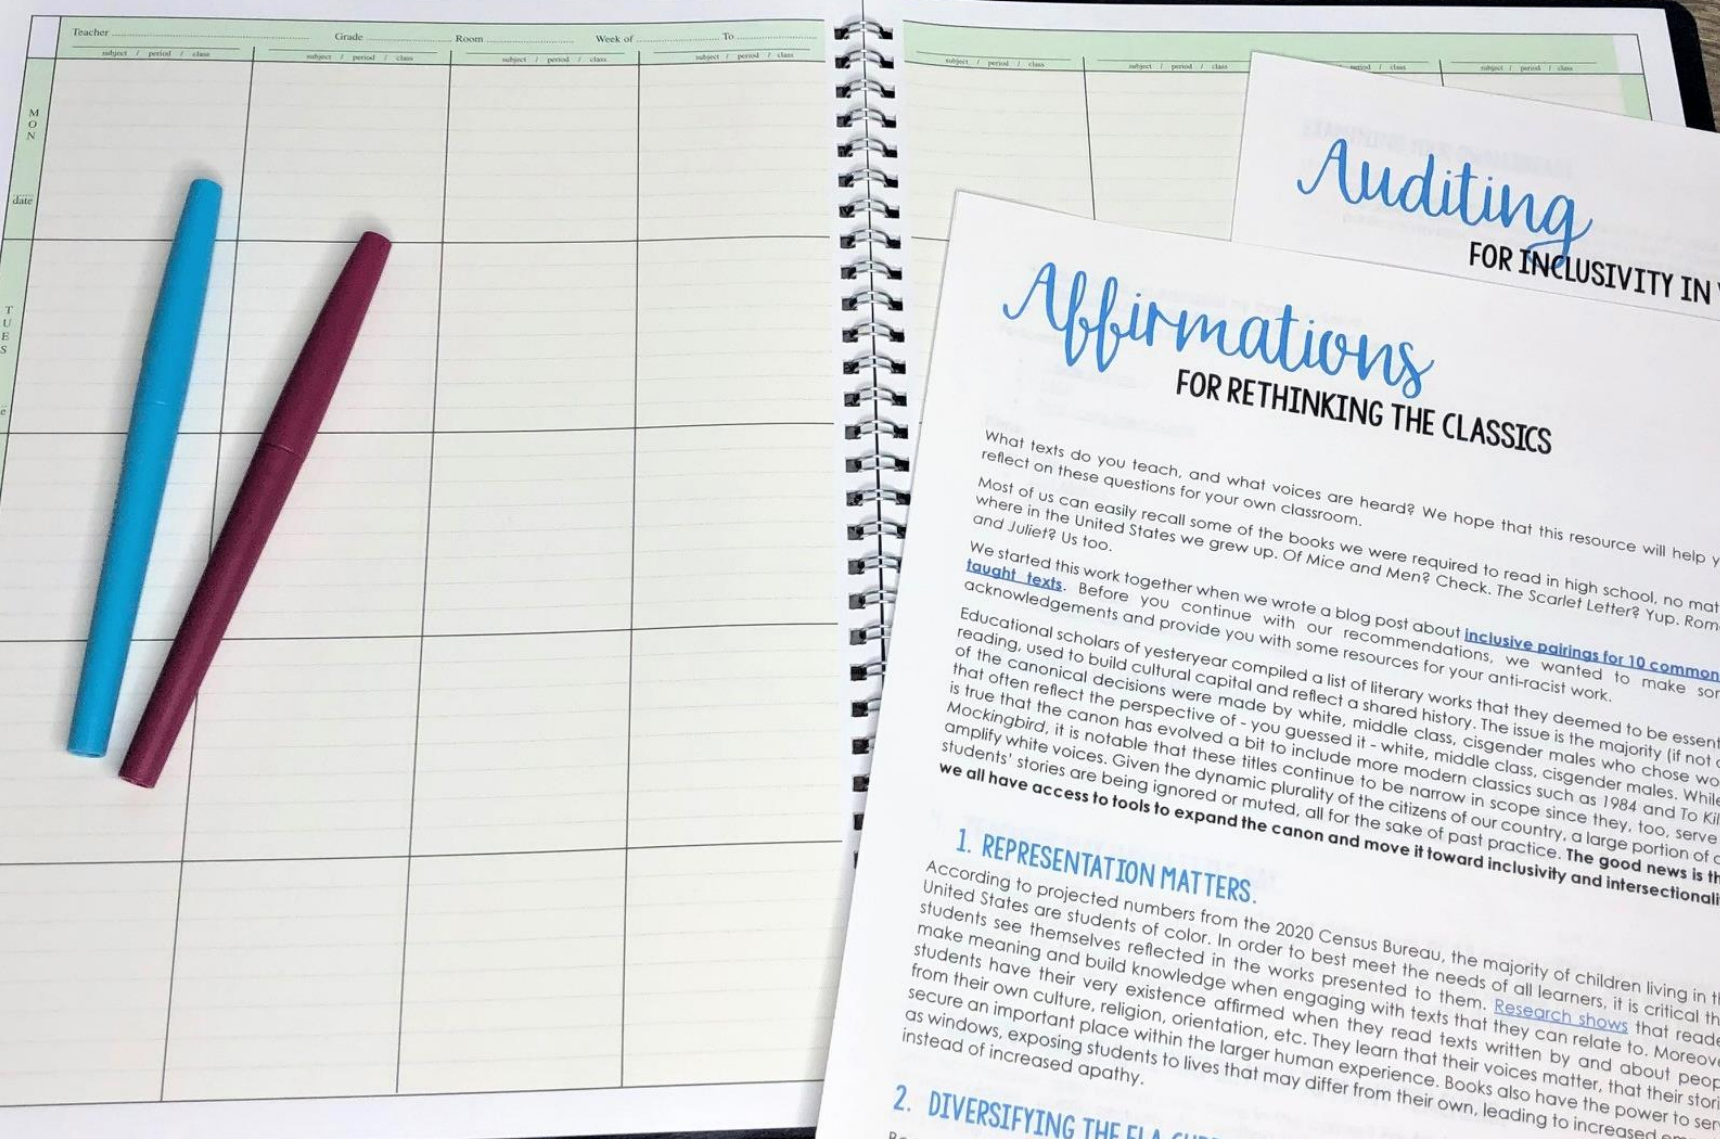 Teacher Grade Room Week of To
subject / period / class subject / period / class subject / period / class subject / period / class
subject / period / class subject / period / class period / class subject / period / class
MON
date
TUES
e
Auditing
FOR INCLUSIVITY IN
Affirmations
FOR RETHINKING THE CLASSICS
What texts do you teach, and what voices are heard? We hope that this resource will help y
reflect on these questions for your own classroom.
Most of us can easily recall some of the books we were required to read in high school, no mat
where in the United States we grew up. Of Mice and Men? Check. The Scarlet Letter? Yup. Rom
and Juliet? Us too.
We started this work together when we wrote a blog post about inclusive pairings for 10 common
taught texts. Before you continue with our recommendations, we wanted to make som
acknowledgements and provide you with some resources for your anti-racist work.
Educational scholars of yesteryear compiled a list of literary works that they deemed to be essent
reading, used to build cultural capital and reflect a shared history. The issue is the majority (if not
of the canonical decisions were made by white, middle class, cisgender males who chose wo
that often reflect the perspective of - you guessed it - white, middle class, cisgender males. While
is true that the canon has evolved a bit to include more modern classics such as 1984 and To Kil
Mockingbird, it is notable that these titles continue to be narrow in scope since they, too, serve
amplify white voices. Given the dynamic plurality of the citizens of our country, a large portion of
students' stories are being ignored or muted, all for the sake of past practice. The good news is th
we all have access to tools to expand the canon and move it toward inclusivity and intersectionali
1. REPRESENTATION MATTERS.
According to projected numbers from the 2020 Census Bureau, the majority of children living in th
United States are students of color. In order to best meet the needs of all learners, it is critical th
students see themselves reflected in the works presented to them. Research shows that reade
make meaning and build knowledge when engaging with texts that they can relate to. Moreov
students have their very existence affirmed when they read texts written by and about peop
from their own culture, religion, orientation, etc. They learn that their voices matter, that their stori
secure an important place within the larger human experience. Books also have the power to ser
as windows, exposing students to lives that may differ from their own, leading to increased
instead of increased apathy.
2. DIVERSIFYING THE ELA